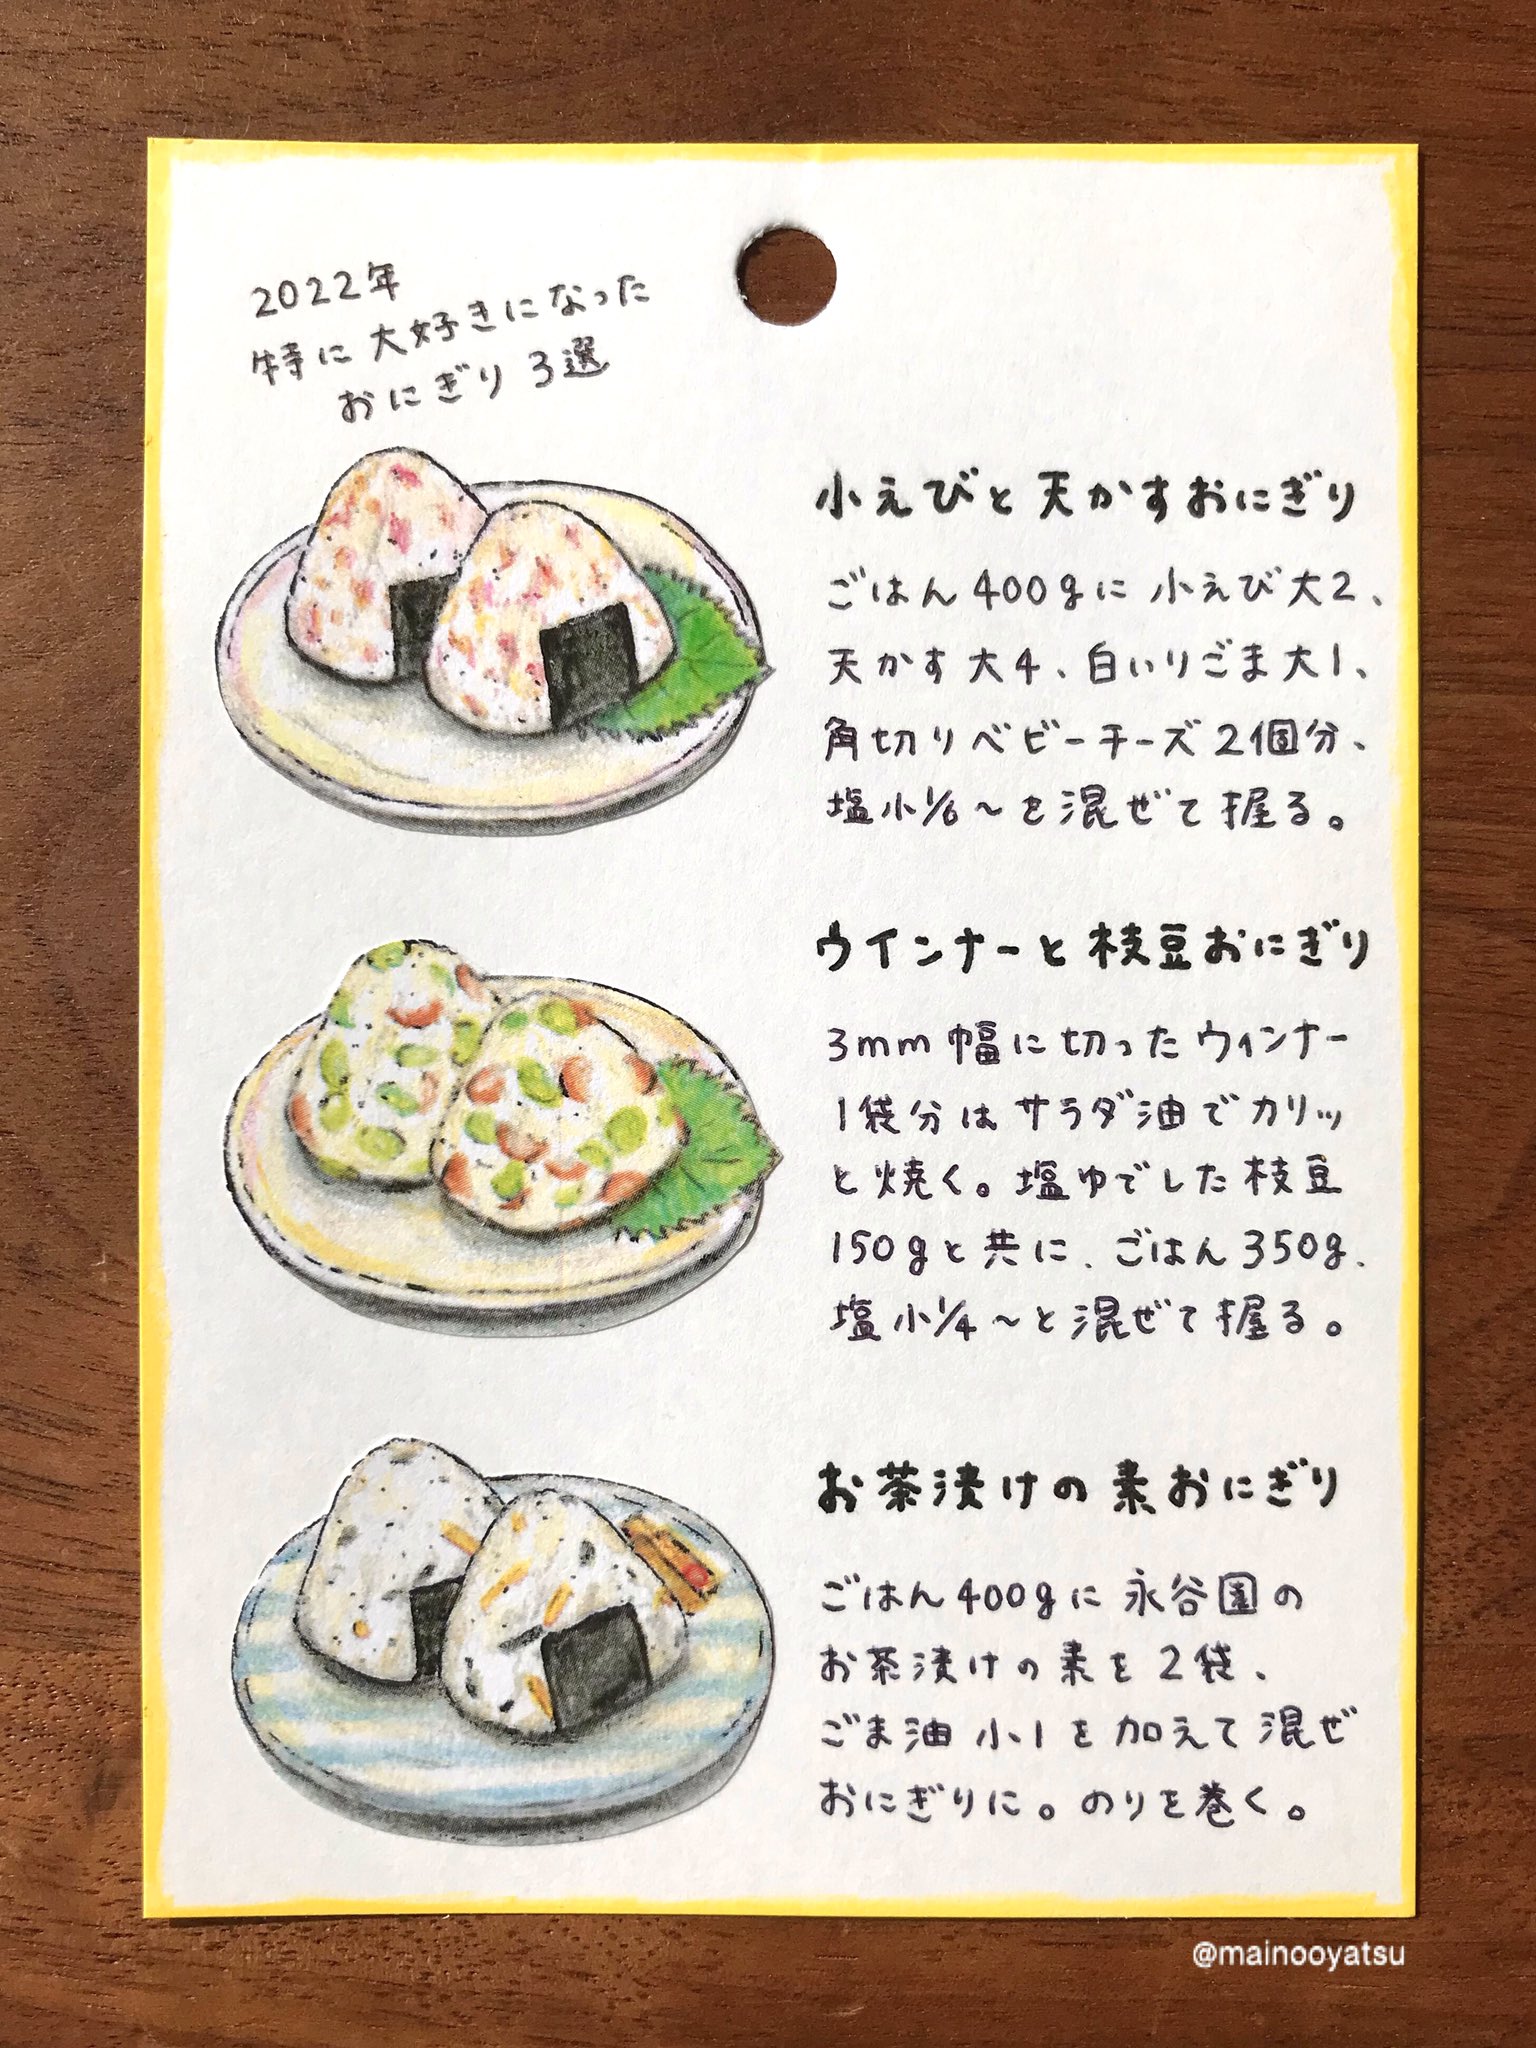 2022年
特に大好きになった
おにぎり3選
小えびと天かすおにぎり
ごはん400gに小えび大2、
天かす大4、白いりごま大1、
角切りベビーチーズ2個分、
塩小1/6〜を混ぜて握る。
ウインナーと枝豆おにぎり
3mm幅に切ったウィンナー
1袋分はサラダ油でカリッ
と焼く。塩ゆでした枝豆
150gと共に、ごはん350g、
塩小1/4〜と混ぜて握る。
お茶漬けの素おにぎり
ごはん400gに永谷園の
お茶漬けの素を2袋、
ごま油小1を加えて混ぜ
おにぎりに。のりを巻く。
@mainooyatsu